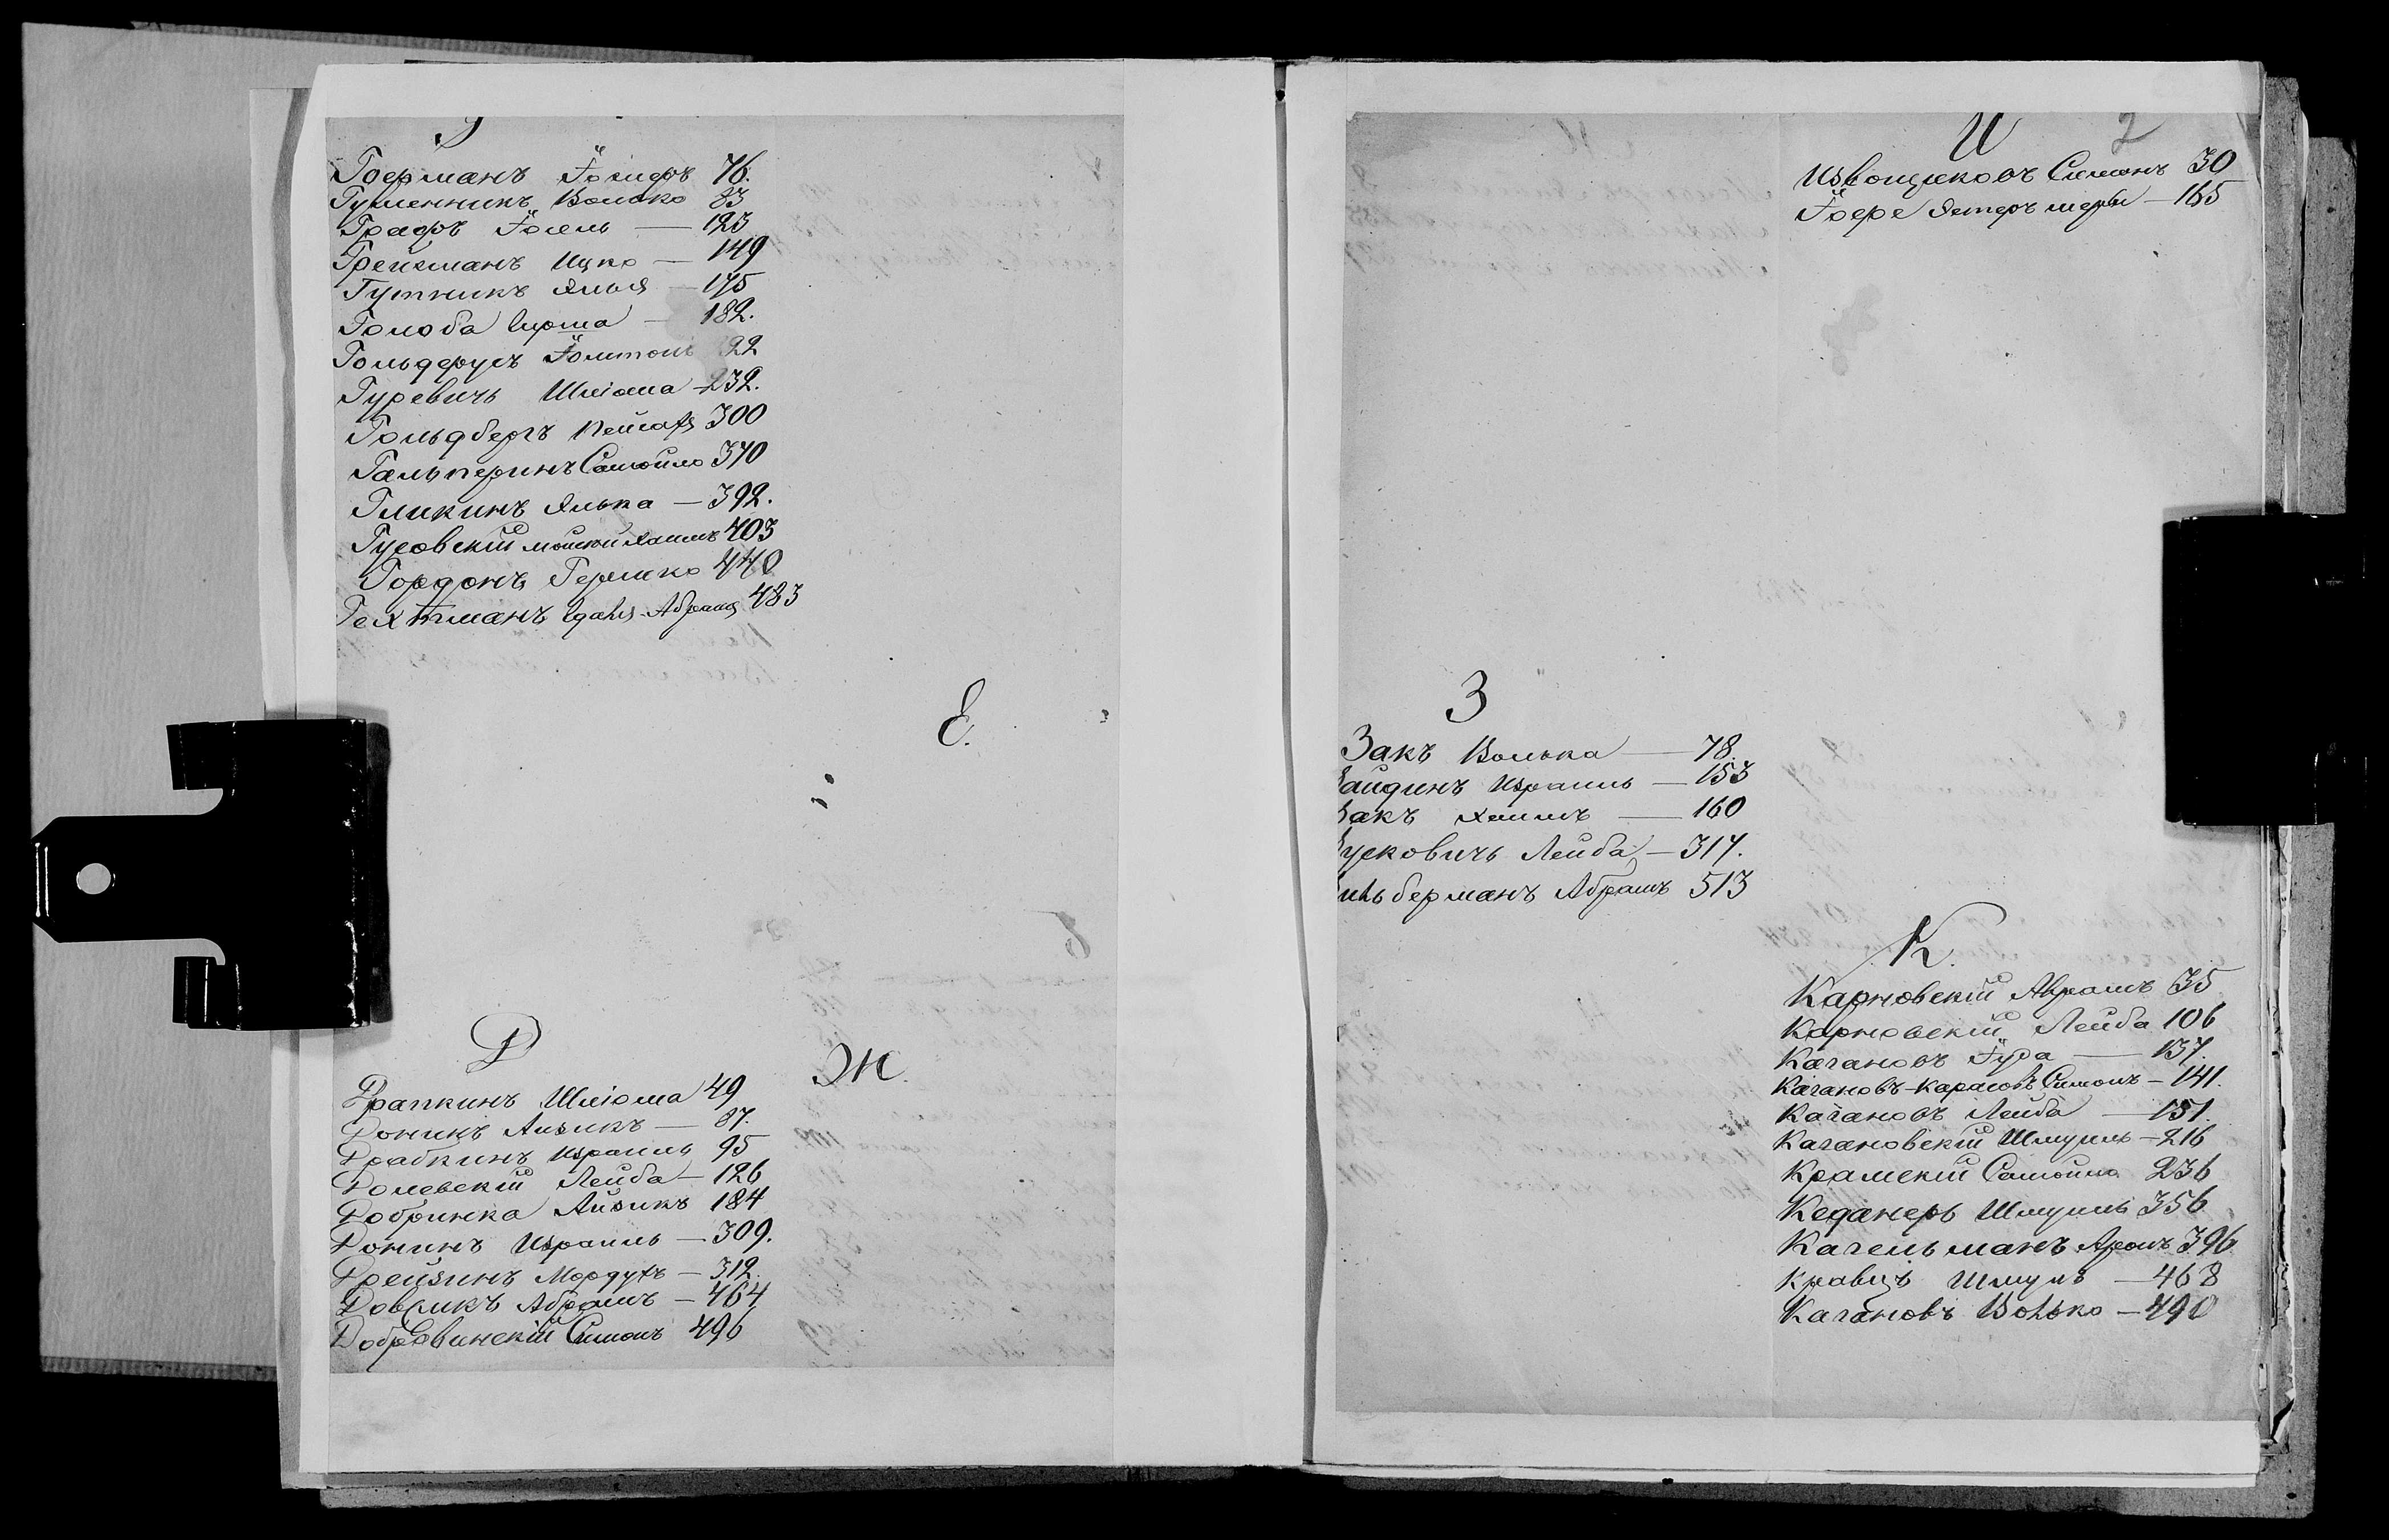 Г
Гоерманъ 76.
Гуменникъ Волько 83
Графъ Іосель — 123
Грейсманъ Ицко — 149
Гутникъ Янкя — 175
Голоба — 182.
22
Гуревичъ Шліома — 232.
Гольдбергъ 300
Гальперинъ Самойло 370
Гликинъ Элька — 392.
Гусовскій 403
Гордонъ Гершко 440
Гехтманъ 483
Е.
Д
Драпкинъ Шліома 49
Донинъ Айзикъ — 87.
Драбкинъ Израиль 95
Долевскій Лейба — 126
Добринка Айзикъ 184
Донинъ Израиль — 309.
Дрейзинъ Мордухъ — 312.
Доврикъ Абрамъ — 464
Симонъ 496
Ж.
И 2
Извощиковъ Симонъ 30
165
З
Закъ Волька — 78.
Зайдинъ Израиль — 153
Закъ Хаимъ — 160
Зусковичъ Лейба — 317.
Зильберманъ Абрамъ 513
К.
Карновскій Абрамъ 35
Карновскій Лейба 106
Кагановъ Іуда — 137.
Кагановъ-Карасовъ Симонъ — 141.
Кагановъ Лейба — 151.
Кагановскій Шмуиль — 216
Крамскій Самойло 236
Кеданеръ Шмуиль 356
Кагельманъ Аронъ 396
Кравецъ Шмулъ — 468
Кагановъ Волько — 490